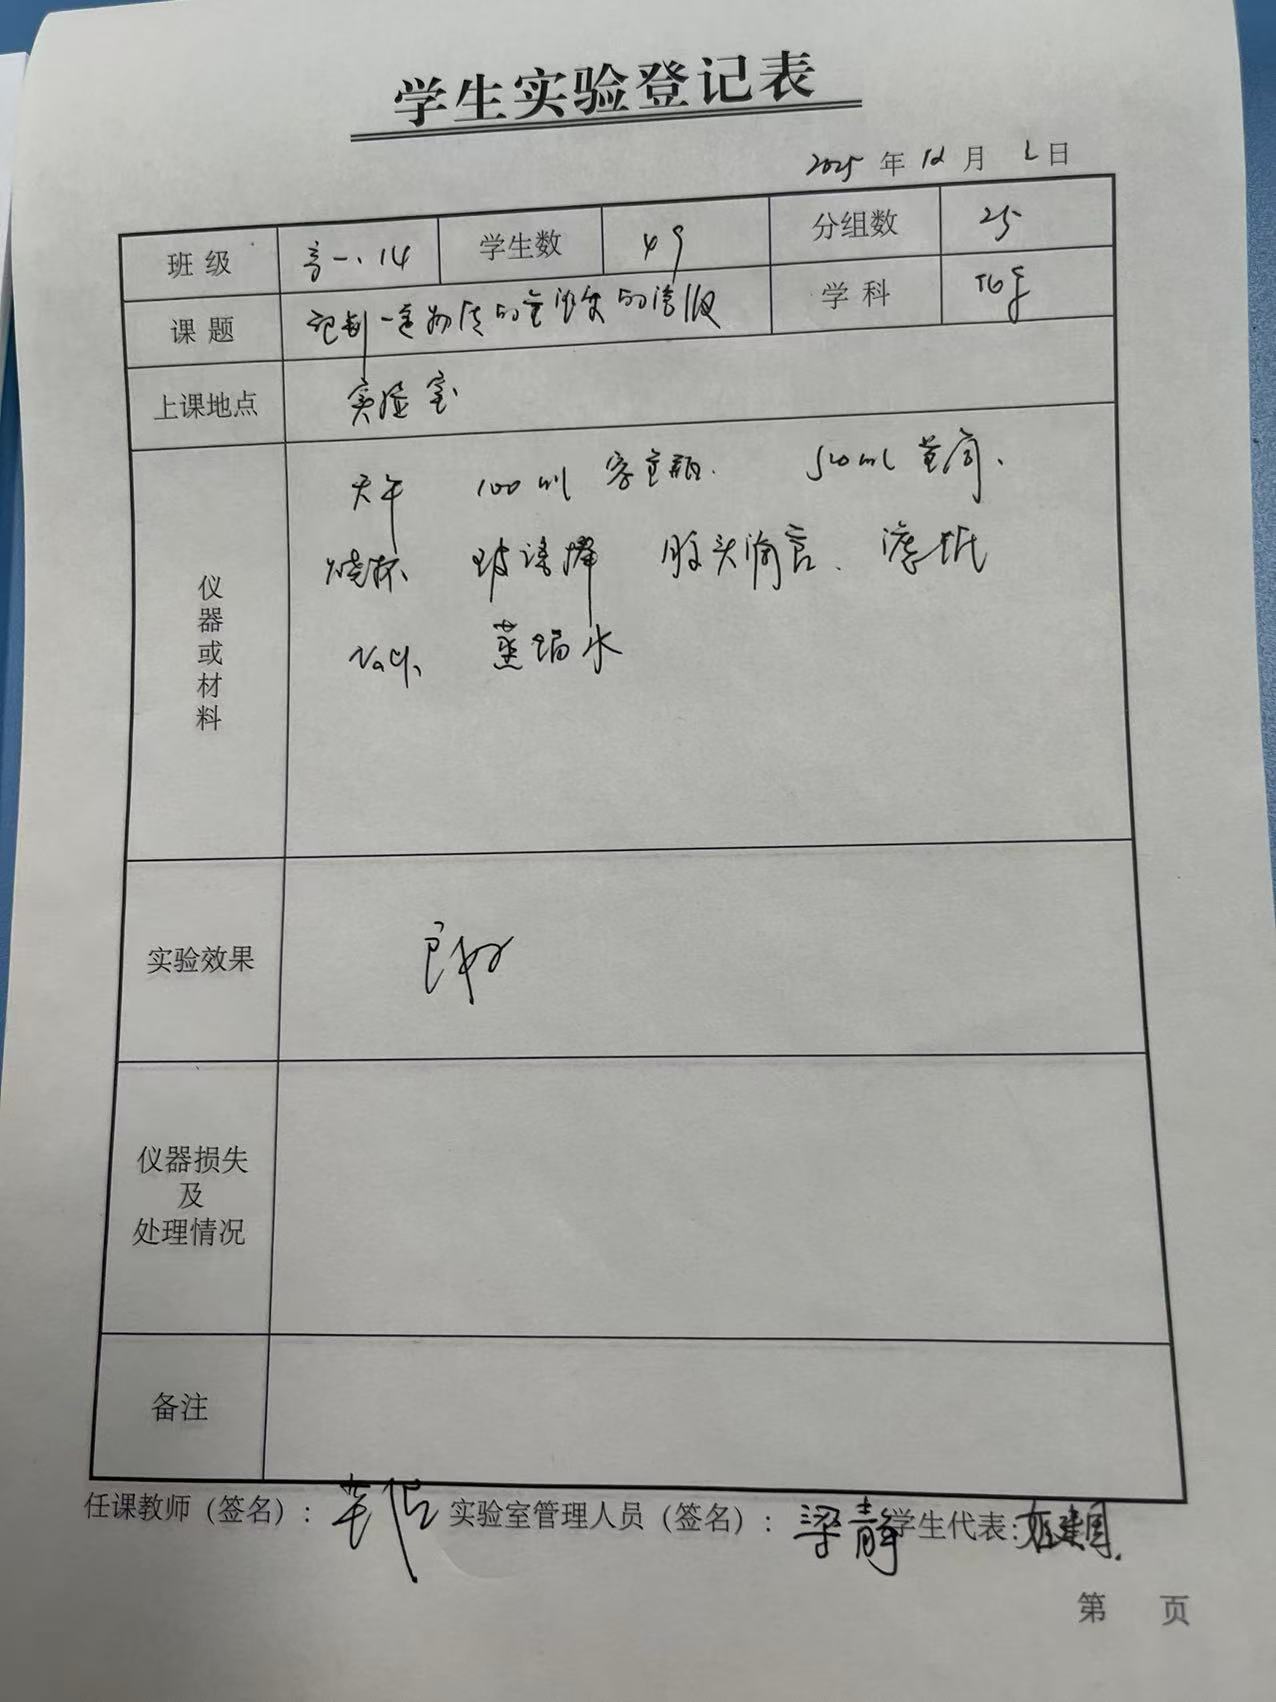 学生实验登记表
2025 年 12 月 2 日
班 级 高一.14 学生数 49 分组数 25
课 题 配制一定物质的量浓度的溶液 学 科 化学
上课地点 实验室
仪器或材料
天平 100 ml 容量瓶. 50 ml 量筒.
烧杯 玻璃棒 胶头滴管. 滤纸
NaCl. 蒸馏水
实验效果 良好
仪器损失
及
处理情况
备注
任课教师（签名）： 实验室管理人员（签名）：梁静 学生代表：
第 页